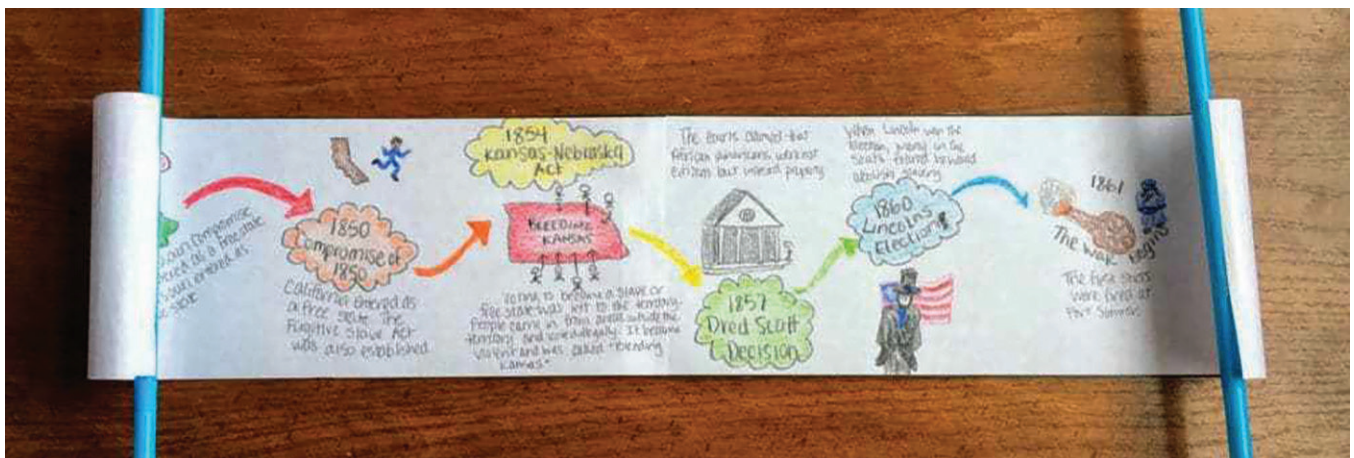 Compromise
as a free state
entered as
state
1850
Compromise of
1850
California entered as
a free state. The
Fugitive Slave Act
was also established
1854
Kansas-Nebraska
Act
BLEEDING
KANSAS
Voting to become a slave or
free state was left to the territory.
People came in from areas outside the
territory and voted illegally. It became
violent and was called "Bleeding
Kansas."
The courts claimed that
African Americans were not
citizens but instead property
1857
Dred Scott
Decision
When Lincoln won the
election, many in the
South feared he would
abolish slavery
1860
Lincolns
Election
1861
The war begins
The first shots
were fired at
Fort Sumter